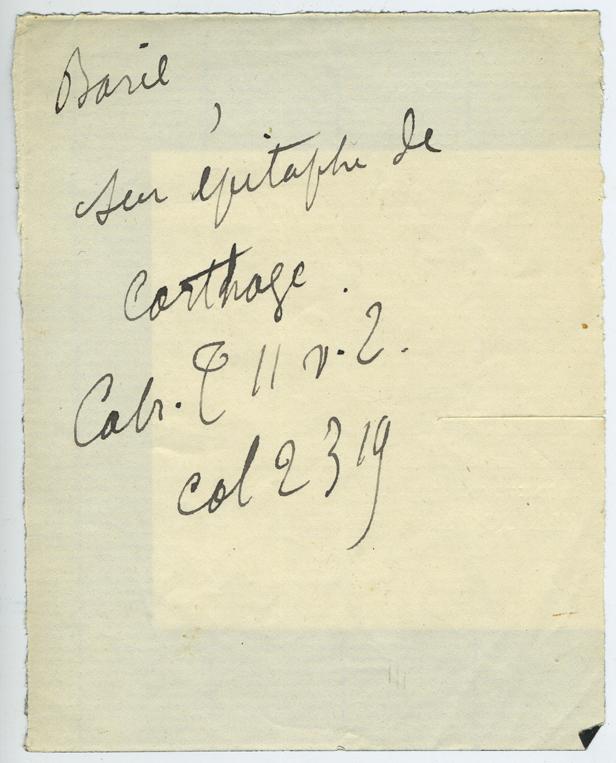 Baril
sur épitaphe de
Carthage.
Cabr. T 11 v. 2.
col 2319